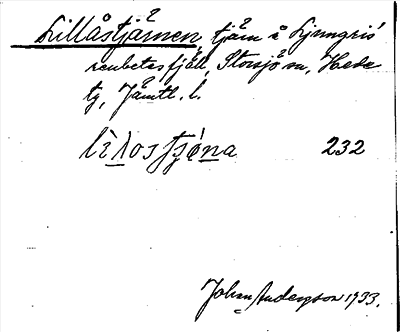 Lillåstjärnen, tjärn å Ljungris
renbetesfjäll, Storsjö sn, Hede
tg, Jämtl. l.
lìlostjøna 232
Johan Andersson 1933.